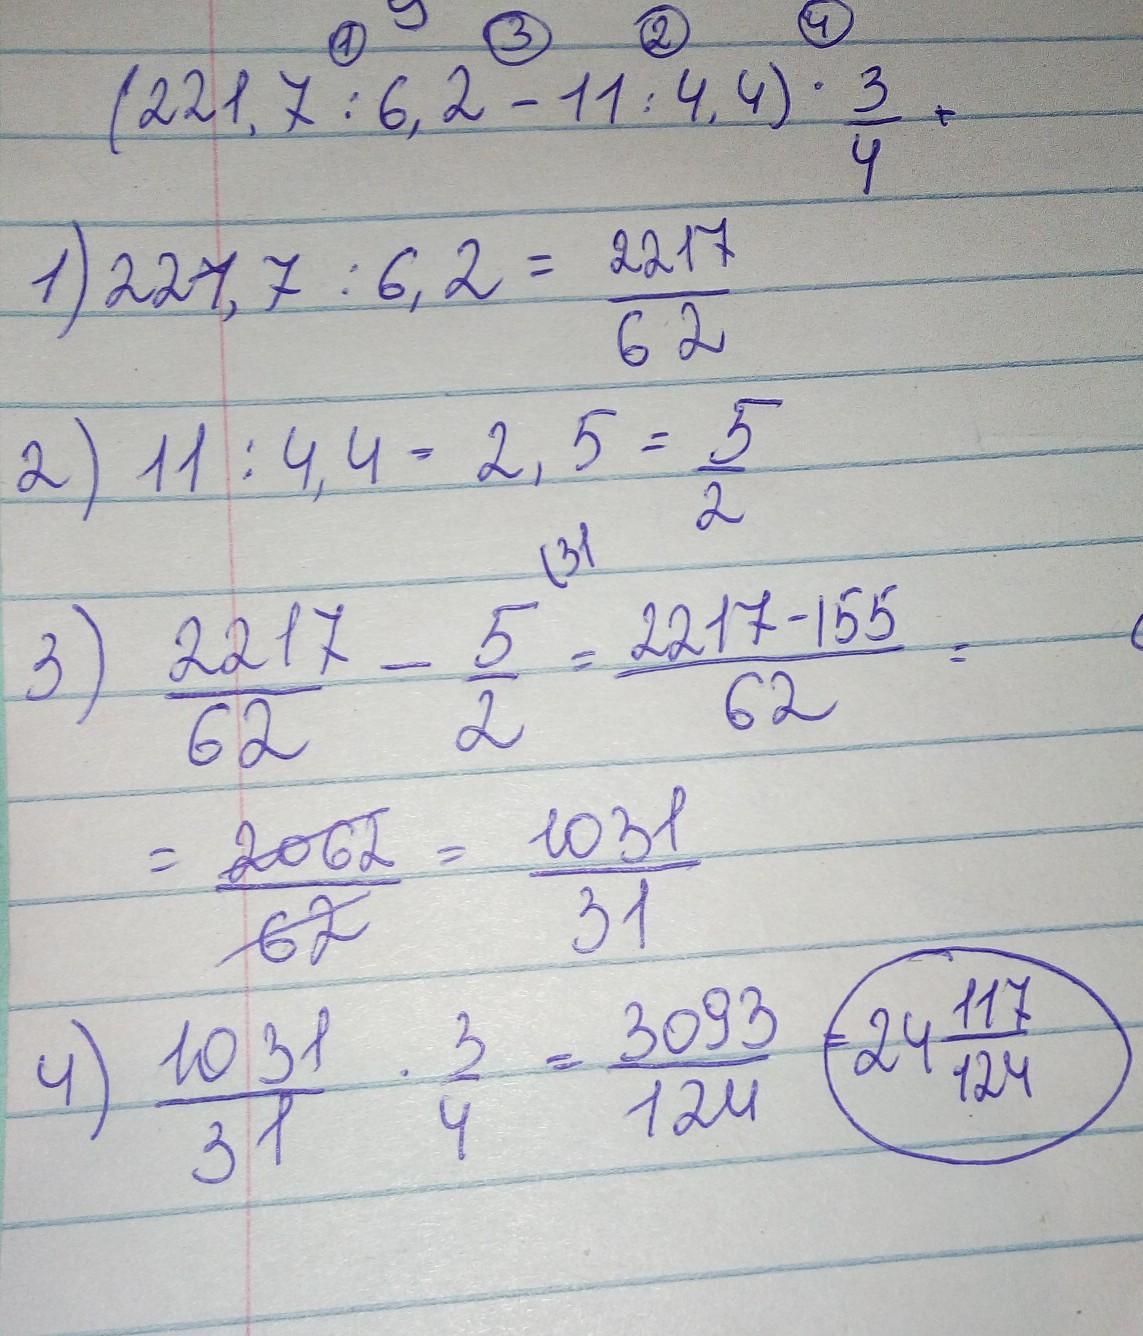 ① ③ ② ④
(221,7 : 6,2 - 11 : 4,4) · 3/4 +
1) 221,7 : 6,2 = 2217/62
2) 11 : 4,4 = 2,5 = 5/2
3) 2217/62 - 5/2 (31 = 2217-155/62 =
= 2062/62 = 1031/31
4) 1031/31 · 3/4 = 3093/124 = 24 117/124